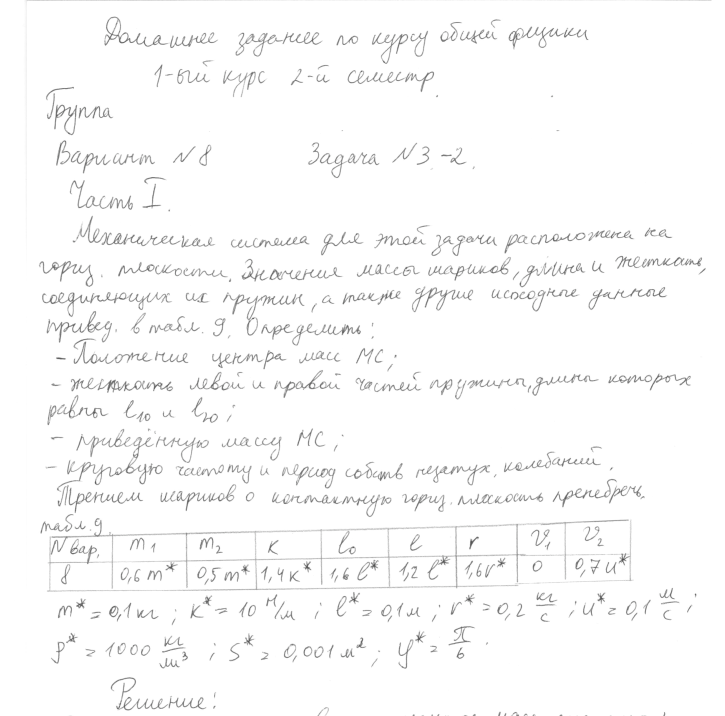 Домашнее задание по курсу общей физики
1-ый курс 2-й семестр
Группа
Вариант №8 Задача №3-2.
Часть I.
Механическая система для этой задачи расположена на
гориз. плоскости. Значения массы шариков, длина и жесткать,
соединяющих их пружин, а также другие исходные данные
привед. в табл. 9. Определить:
- Положение центра масс МС;
- жесткать левой и правой частей пружины, длины которых
равны l₁₀ и l₂₀;
- приведённую массу МС;
- круговую частоту и период собств незатух. колебаний.
Трением шариков о контактную гориз. плоскость пренебречь.
табл. 9.
N вар. m₁ m₂ K l₀ l r V₁ V₂
8 0,6 m* 0,5 m* 1,4 к* 1,6 l* 1,2 l* 1,6 r* 0 0,7 u*
m* = 0,1 кг ; K* = 10 Н/м ; l* = 0,1 м ; r* = 0,2 кг/с ; u* = 0,1 м/с ;
ρ* = 1000 кг/м³ ; S* = 0,001 м² ; φ* = π/6 .
Решение: